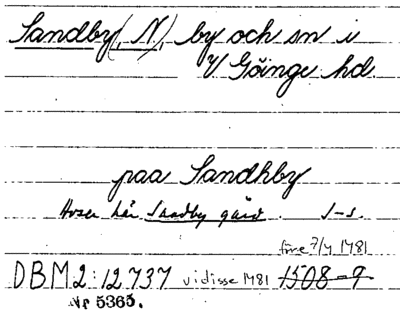 Sandby(, N), by och sn i
V Göinge hd
paa Sandhby
Avser här Sandby gård. J-s.
före 7/4 1481
DBM 2:12737 vidisse 1481 1508-9
Nr 5365.